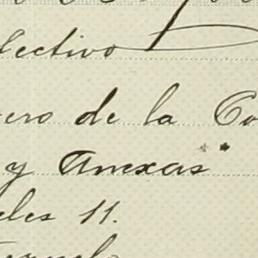 lectivo
ero de la Co
y Anexas"
eles 11.